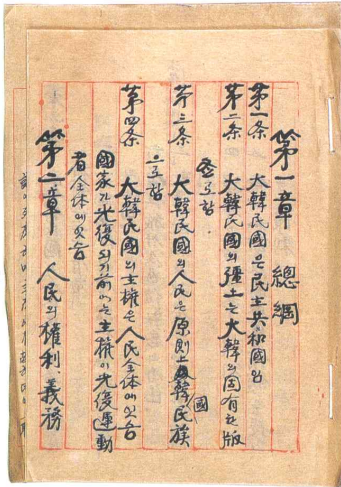 第一章 總綱
第一条 大韓民國은民主共和國임
第二条 大韓民國의疆土는大韓의固有한版
图로함.
第三条 大韓民國의人民은原則上韓國民族
으로함
第四条 大韓民國의主權은人民全体에잇슴
國家가光復되기前에는主權이光復運動
者全体에잇슴
第二章 人民의權利、義務